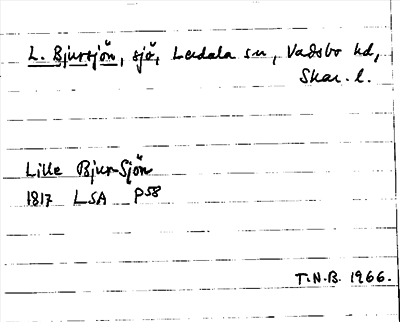 L. Bjursjön, sjö, Lerdala sn, Vadsbo hd,
Skar. l.
Lille Bjur-Sjön
1817 LSA P58
T.N.B. 1966.